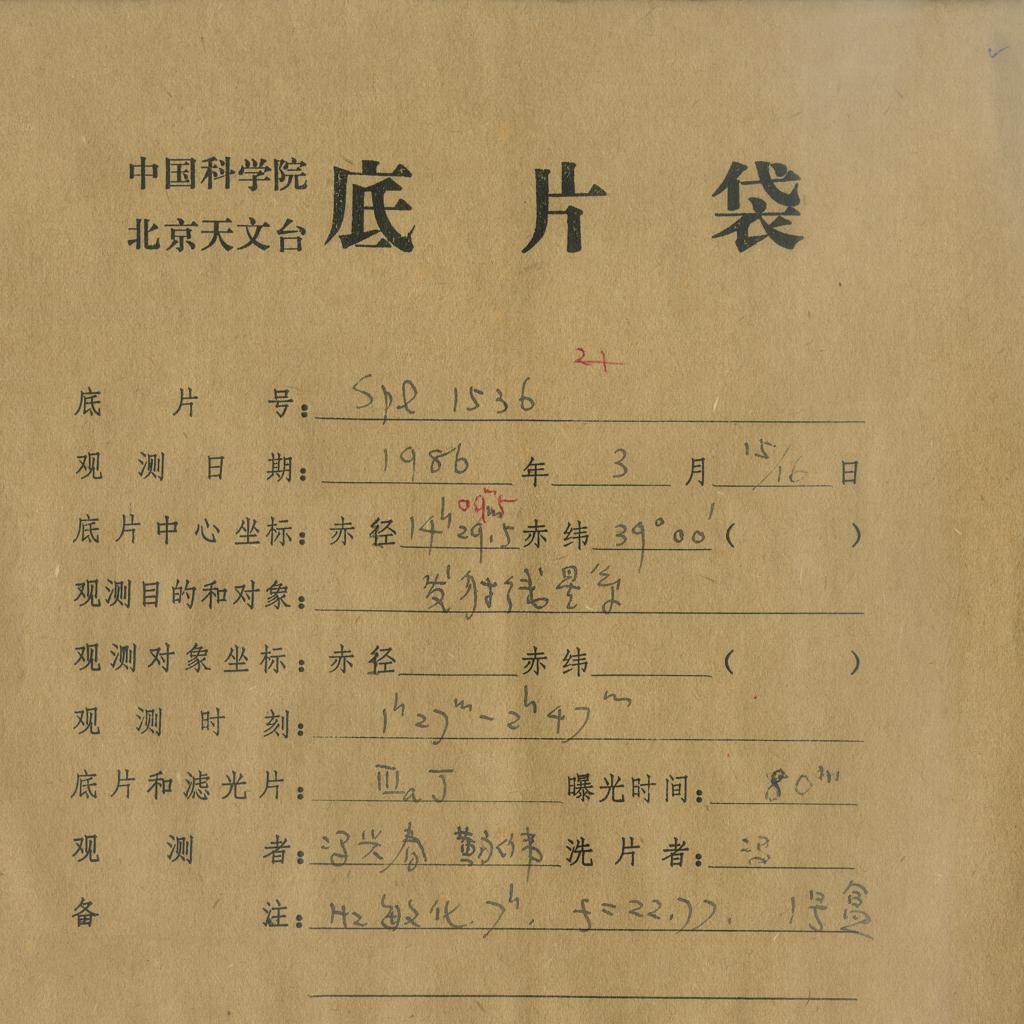 中国科学院
北京天文台 底片袋
2+
底片号: Spl 1536
观测日期: 1986 年 3 月 15/16 日
09m.5
底片中心坐标: 赤径 14h 29m.5 赤纬 39°00′ ( )
观测目的和对象: 发射线星系
观测对象坐标: 赤径 赤纬 ( )
观测时刻: 1h27m-2h47m
底片和滤光片: IIIaJ 曝光时间: 80m
观测者: 冯兴春 黄永伟 洗片者: 冯
备注: H2敏化.7h. f=22.77. 1号盒